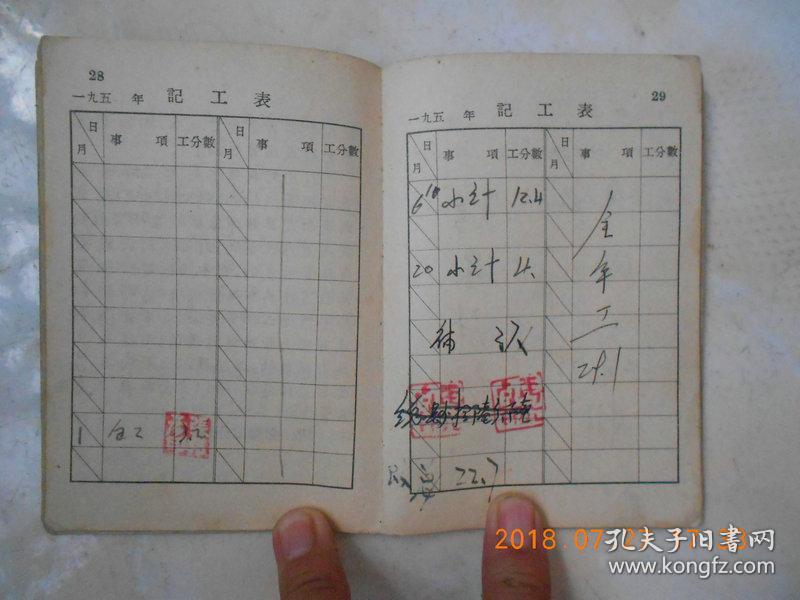 28
一九五 年 記工表
日 月 事項 工分數 日 月 事項 工分數
1
29
一九五 年 記工表
日 月 事項 工分數 日 月 事項 工分數
6 10 小計 12.4
20 小計 4.
全年工
29.1
22.7
2018.07
孔夫子旧書网
www.kongfz.com